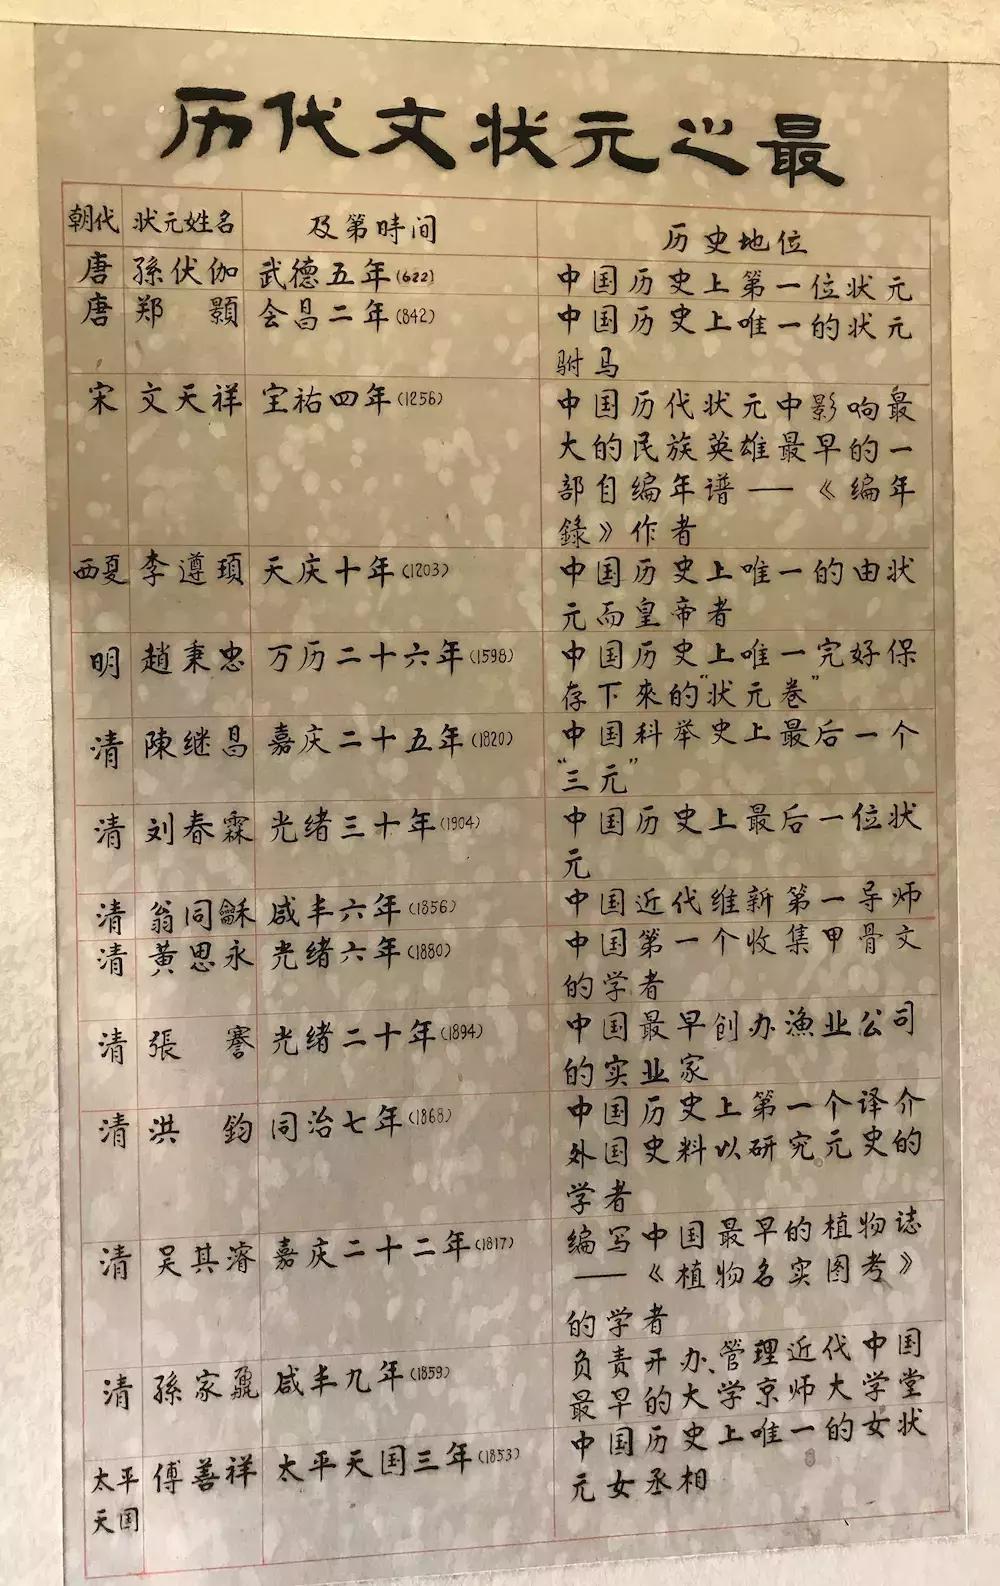 历代文状元之最
朝代 状元姓名 及第時间 历史地位
唐 孫伏伽 武德五年(622) 中国历史上第一位状元
唐 郑顥 会昌二年(842) 中国历史上唯一的状元
驸马
宋 文天祥 宝祐四年(1256) 中国历代状元中影响最
大的民族英雄最早的一
部自编年谱——《编年
錄》作者
西夏 李遵頊 天庆十年(1203) 中国历史上唯一的由状
元而皇帝者
明 趙秉忠 万历二十六年(1598) 中国历史上唯一完好保
存下來的“状元卷”
清 陳继昌 嘉庆二十五年(1820) 中国科举史上最后一个
“三元”
清 刘春霖 光绪三十年(1904) 中国历史上最后一位状
元
清 翁同龢 咸丰六年(1856) 中国近代维新第一导师
清 黄思永 光绪六年(1880) 中国第一个收集甲骨文
的学者
清 張謇 光绪二十年(1894) 中国最早创办渔业公司
的实业家
清 洪鈞 同治七年(1868) 中国历史上第一个译介
外国史料以研究元史的
学者
清 吴其濬 嘉庆二十二年(1817) 编写中国最早的植物誌
——《植物名实图考》
的学者
清 孫家鼐 咸丰九年(1859) 负责开办、管理近代中国
最早的大学京师大学堂
太平天国 傅善祥 太平天国三年(1853) 中国历史上唯一的女状
元女丞相